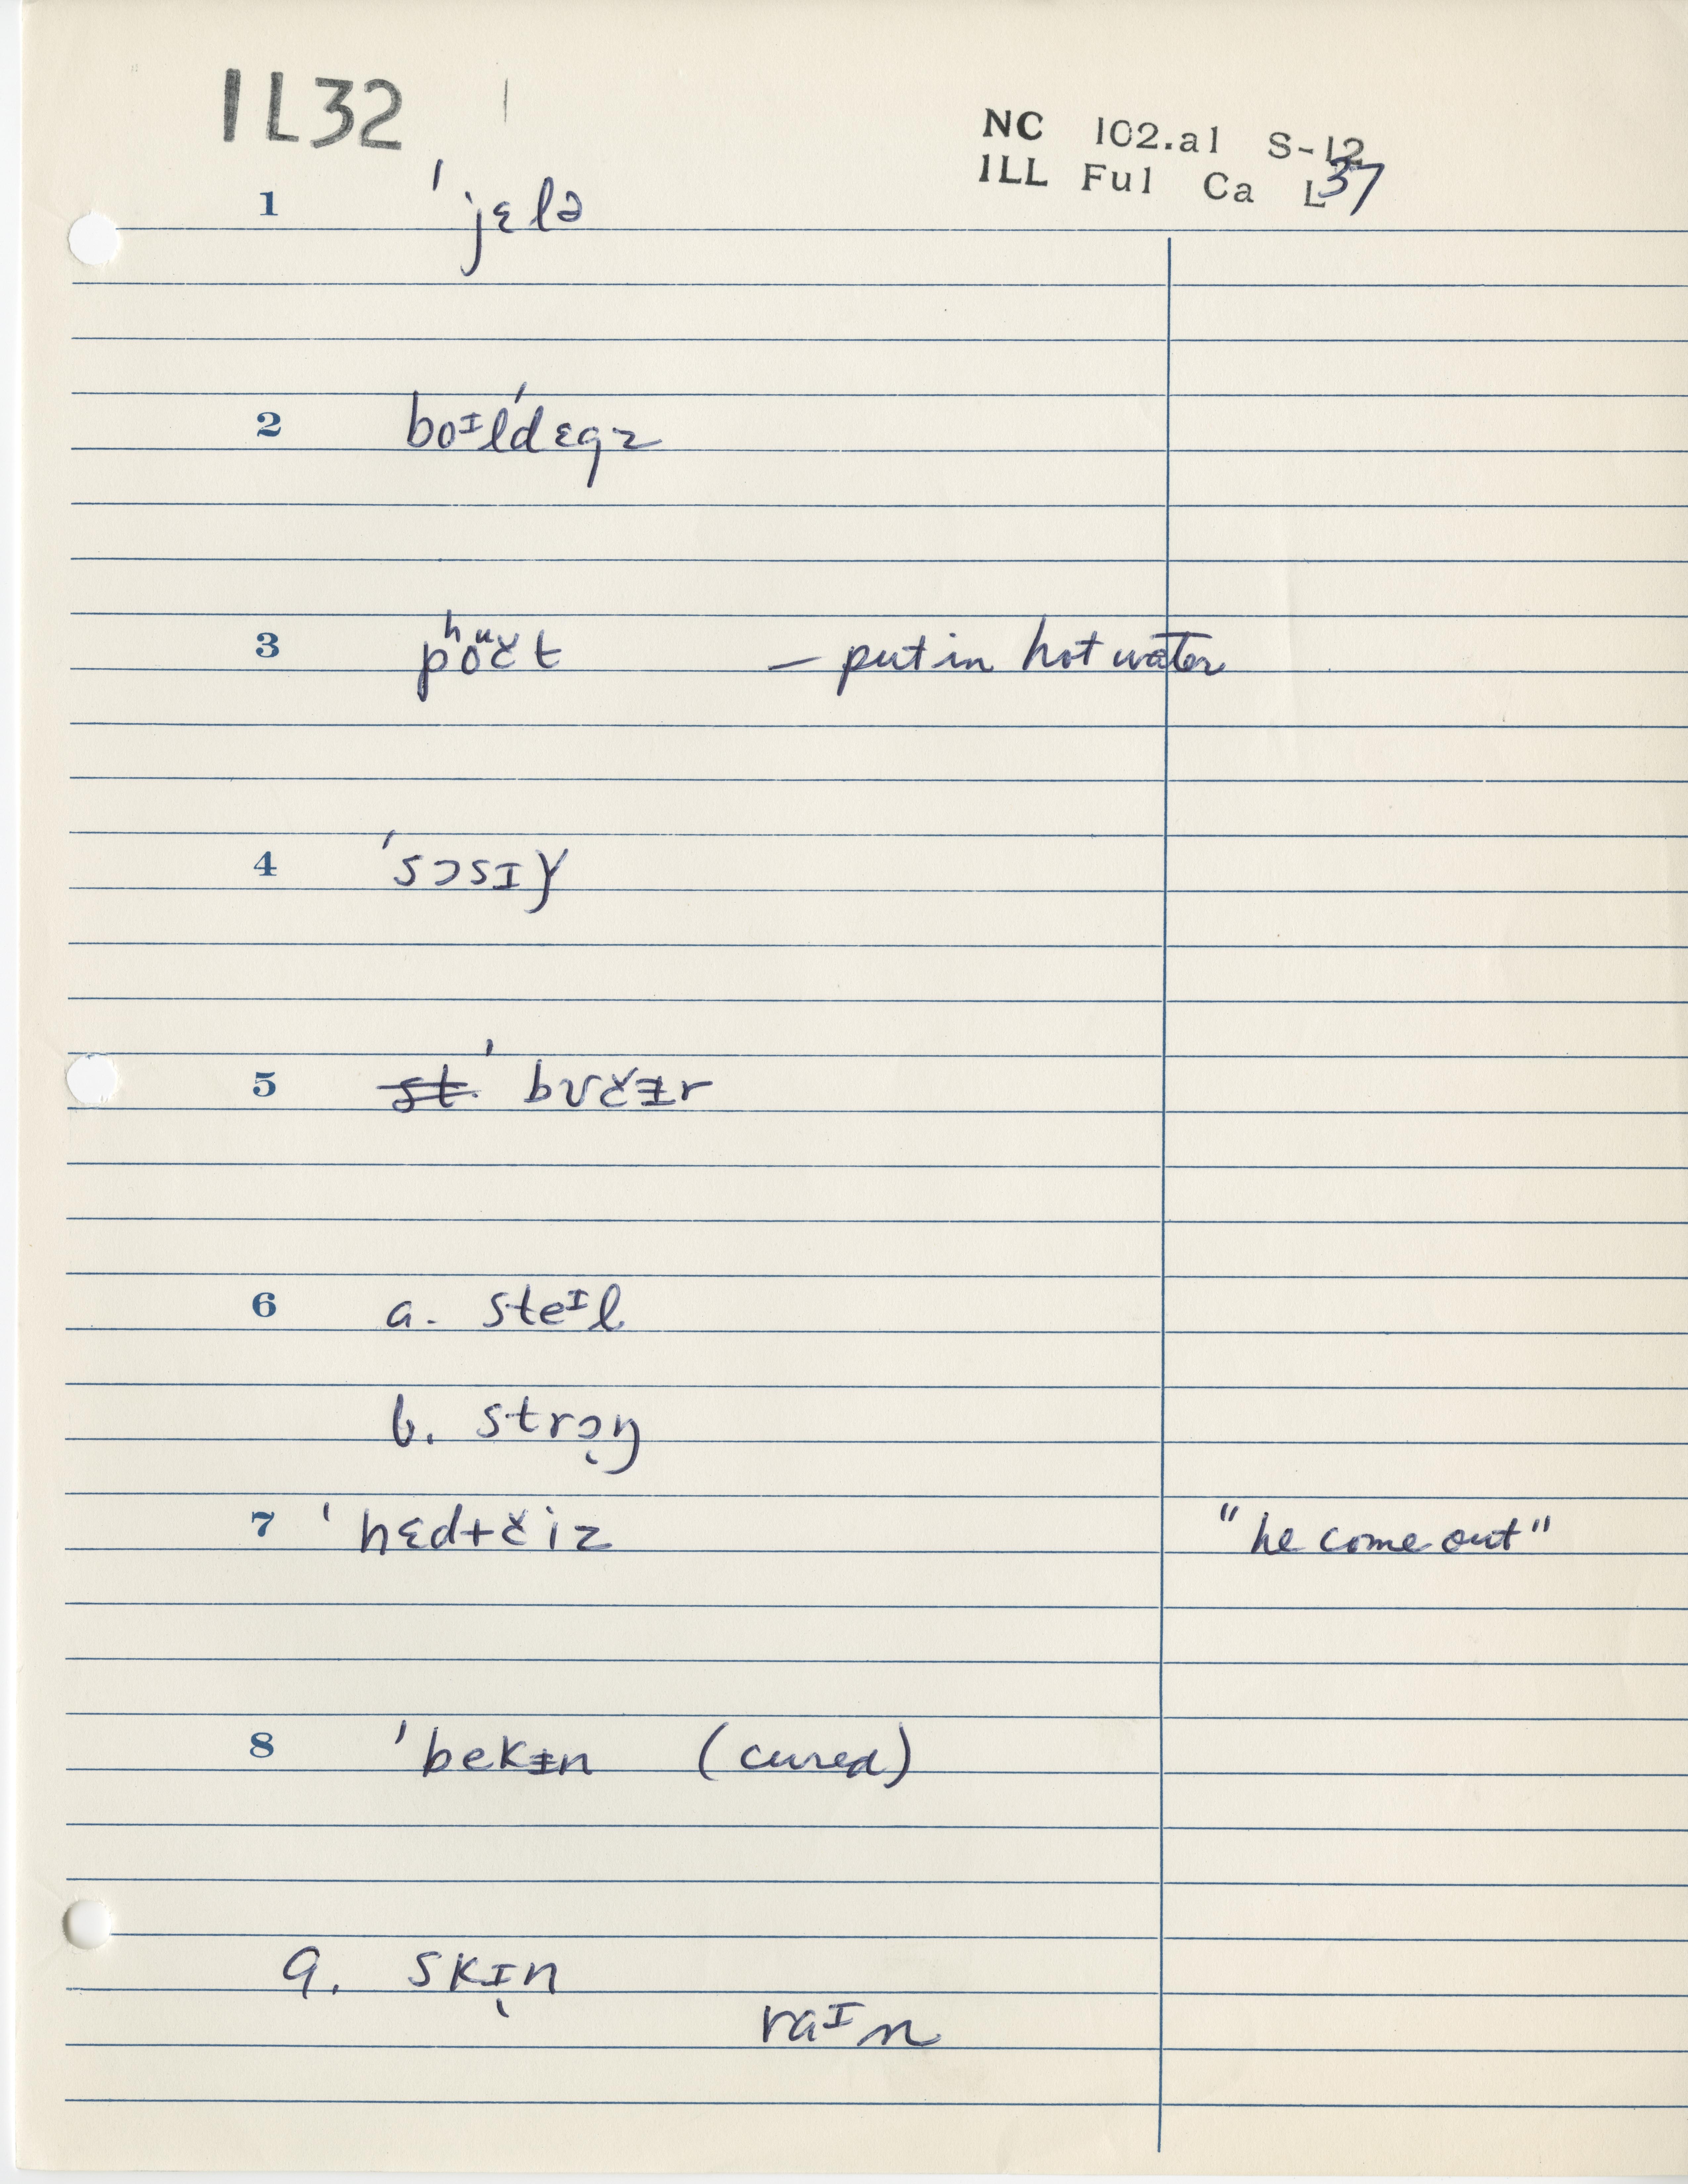 1L32
NC 102.a1 S-12
ILL Ful Ca L37
1 ˈjɛlə
2 boᶦlˈdɛgz
3 pʰoᵘčt — put in hot water
4 ˈsɔsɪɣ
5 st. ˈbʊčɨr
6 a. steᶦl
b. strɔ̨ŋ
7 ˈhɛdtčiz "he come out"
8 ˈbekɨn (cured)
9. skɪ̨n
raᶦn